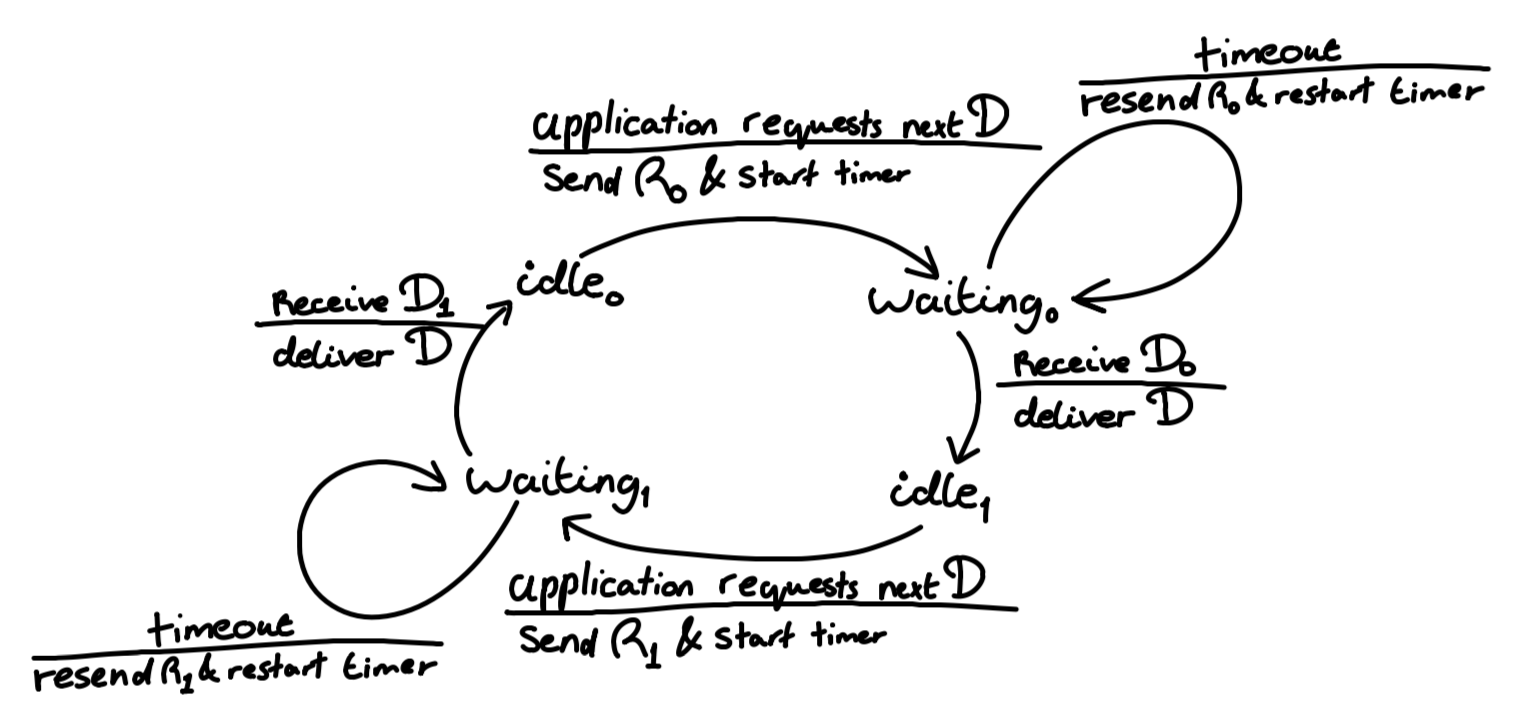 timeout
resend R₀ & restart timer
application requests next D
Send R₀ & start timer
idle₀
waiting₀
Receive D₁
deliver D
Receive D₀
deliver D
waiting₁
idle₁
application requests next D
Send R₁ & start timer
timeout
resend R₁ & restart timer